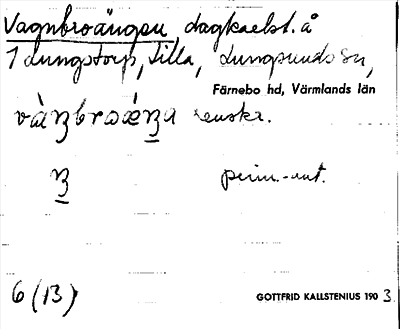 Vagnbroängen, dagkaelst. å
1 Lungstorp, Lilla, Lungsunds sn,
Färnebo hd, Värmlands län
renskr.
6 (13)
GOTTFRID KALLSTENIUS 1903